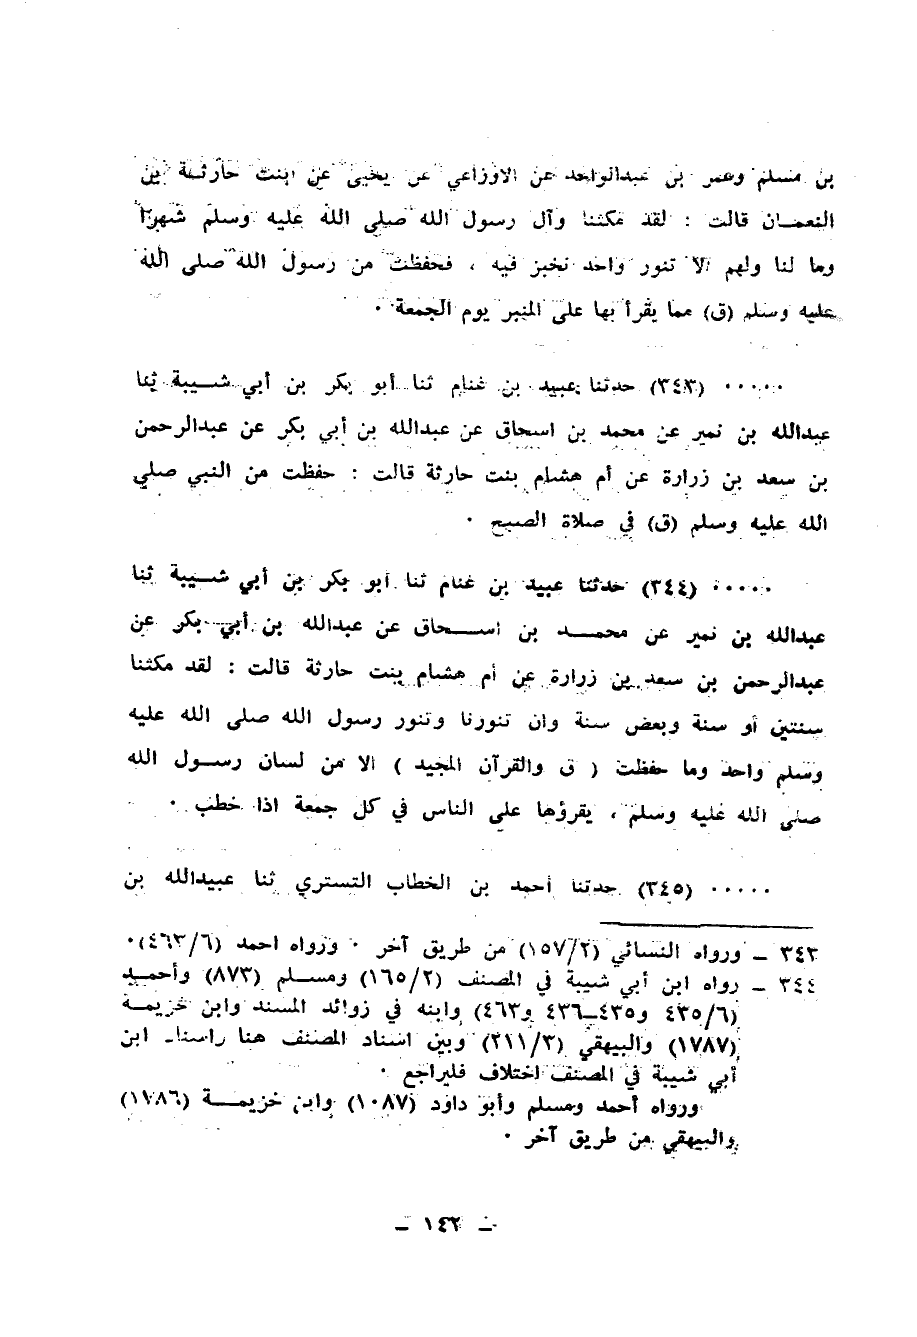 بن مسلم وعمر بن عبدالواحد عن الاوزاعي عن يحيى عن ابنت حارثة بن
النعمان قالت : لقد مكثنا وآل رسول الله صلى الله عليه وسلم شهرا
وما لنا ولهم الا تنور واحد نخبز فيه ، فحفظت من رسول الله صلى الله
عليه وسلم (ق) مما يقرأ بها على المنبر يوم الجمعة ٠
٠٠٠٠٠ (٣٤٣) حدثنا عبيد بن غنام ثنا أبو بكر بن أبي شيبة ثنا
عبدالله بن نمير عن محمد بن اسحاق عن عبدالله بن أبي بكر عن عبدالرحمن
بن سعد بن زرارة عن أم هشام بنت حارثة قالت : حفظت من النبي صلى
الله عليه وسلم (ق) في صلاة الصبح ٠
٠٠٠٠٠ (٣٤٤) حدثنا عبيد بن غنام ثنا أبو بكر بن أبي شيبة ثنا
عبدالله بن نمير عن محمد بن اسحاق عن عبدالله بن أبي بكر عن
عبدالرحمن بن سعد بن زرارة عن أم هشام بنت حارثة قالت : لقد مكثنا
سنتين أو سنة وبعض سنة وان تنورنا وتنور رسول الله صلى الله عليه
وسلم واحد وما حفظت ( ق والقرآن المجيد ) الا من لسان رسول الله
صلى الله عليه وسلم ، يقرؤها على الناس في كل جمعة اذا خطب ٠
٠٠٠٠٠ (٣٤٥) حدثنا أحمد بن الخطاب التستري ثنا عبيدالله بن
٣٤٣ ـ ورواه النسائي (١٥٧/٢) من طريق آخر ٠ ورواه احمد (٤٦٣/٦)٠
٣٤٤ ـ رواه ابن أبي شيبة في المصنف (١٦٥/٢) ومسلم (٨٧٣) وأحمد
(٤٣٥/٦ و٤٣٥ـ٤٣٦ و٤٦٣) وابنه في زوائد المسند وابن خزيمة
(١٧٨٧) والبيهقي (٢١١/٣) وبين اسناد المصنف هنا واسناد ابن
أبي شيبة في المصنف اختلاف فليراجع ٠
ورواه أحمد ومسلم وأبو داود (١٠٨٧) وابن خزيمة (١٧٨٦)
والبيهقي من طريق آخر ٠
ـ ١٤٢ ـ